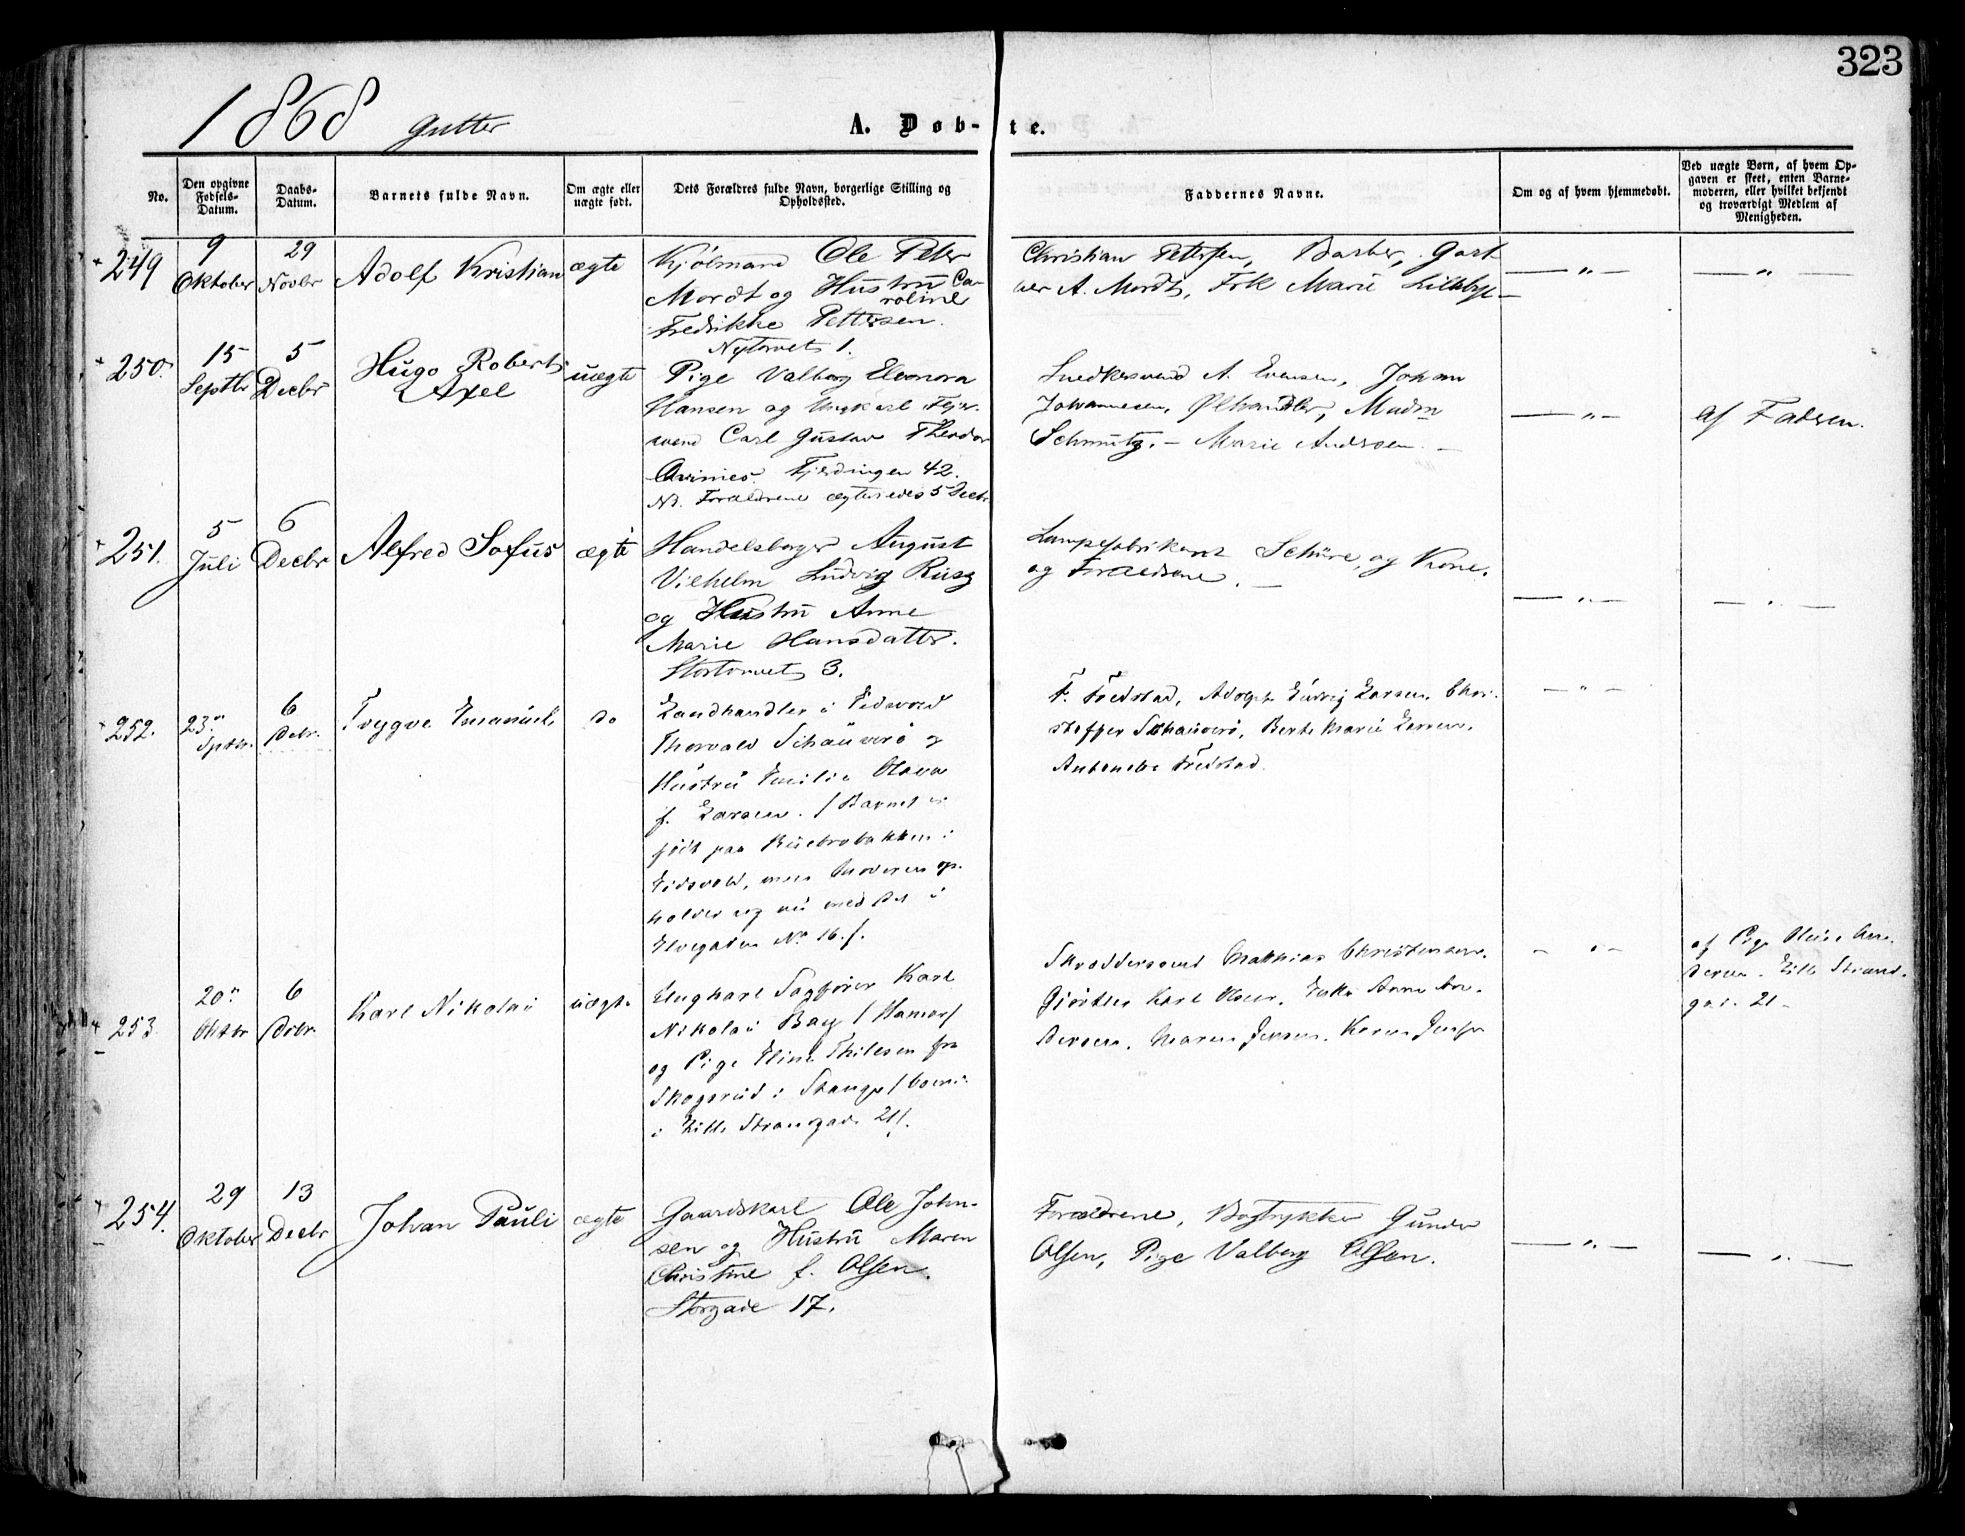 323
1868 Gutter
A. Døb-te.
No.
Den opgivne Fødsels-Datum.
Daabs-Datum.
Barnets fulde Navn.
Om ægte eller uægte født.
Dets Forældres fulde Navn, borgerlige Stilling og Opholdssted.
Faddernes Navne.
Om og af hvem hjemmedøbt.
Ved uægte Børn, af hvem Opgaven er skeet, enten Barnemoderen, eller hvilket bekjendt og troværdigt Medlem af Menigheden.
249
9 Oktober
29 Novbr
Adolf Kristian
ægte
Kjølmand Ole Peter
Mordt og Hustru Caroline
Fredrikke Pettersen.
Nytorvet 1.
Christian Petersen, Barber, Gart
ner A. Mordt, Frk Marie
250.
15 Septbr
5 Decbr
Hugo Robert
Axel
uægte
Pige Valborg Eleonora
Hansen og Ungkarl
svend Carl Gustav Theodor
Fjerdingen 42.
NB. Forældrene ægteviedes 5 Decbr
Snedkersvend A. Evensen, Johan
Johannesen, Ølhandler, Madm
Schmutz, - Marie Andersen. -
af Faderen.
251.
5 Juli
6 Decbr
Alfred Sofus
ægte
Handelsborger August
Vilhelm Ludvig
og Hustru Anne
Marie Hansdatter.
Stortorvet 3.
Lampefabrikant og Kone.
og Forældrene. -
252.
23de Septbr.
6 Debr.
Trygve Emanuel
do
Landhandler i Eidsvold
Thorvald
Hustru Emilie Olava
f. Larsen. / Barnet er
født paa i
Eidsvold, men Moderen op-
holder sig nu med det i
Elvegaden No 16. /.
F. Fredstad, Adolph Ludvig Larsen, Chri-
stoffer Berte Marie Larsen,
Fredstad.
253
20de Oktbr
6 Debr.
Karl Nikolai
uægte
Ungkarl Sagfører Karl
Nikolai / Hamar /
og Pige Eline Thilesen fra
Skogsrud i Stange / boende
i Lille Strandgade 21 /.
Skræddersvend Mathias Christensen.
Gjørtler Karl Olsen, Enke Anne An-
dersen, Maren Jensen, Karen
af Pige An-
dersen. Lille Strand-
gad. 21 -
254.
29 Oktober
13 Decbr
Johan Pauli
ægte
Gaardskarl Ole John-
sen og Hustru Maren
Christine f. Olsen.
Storgade 17.
Forældrene, Bogtrykker Gunder
Olsen, Pige Valborg Olsen.